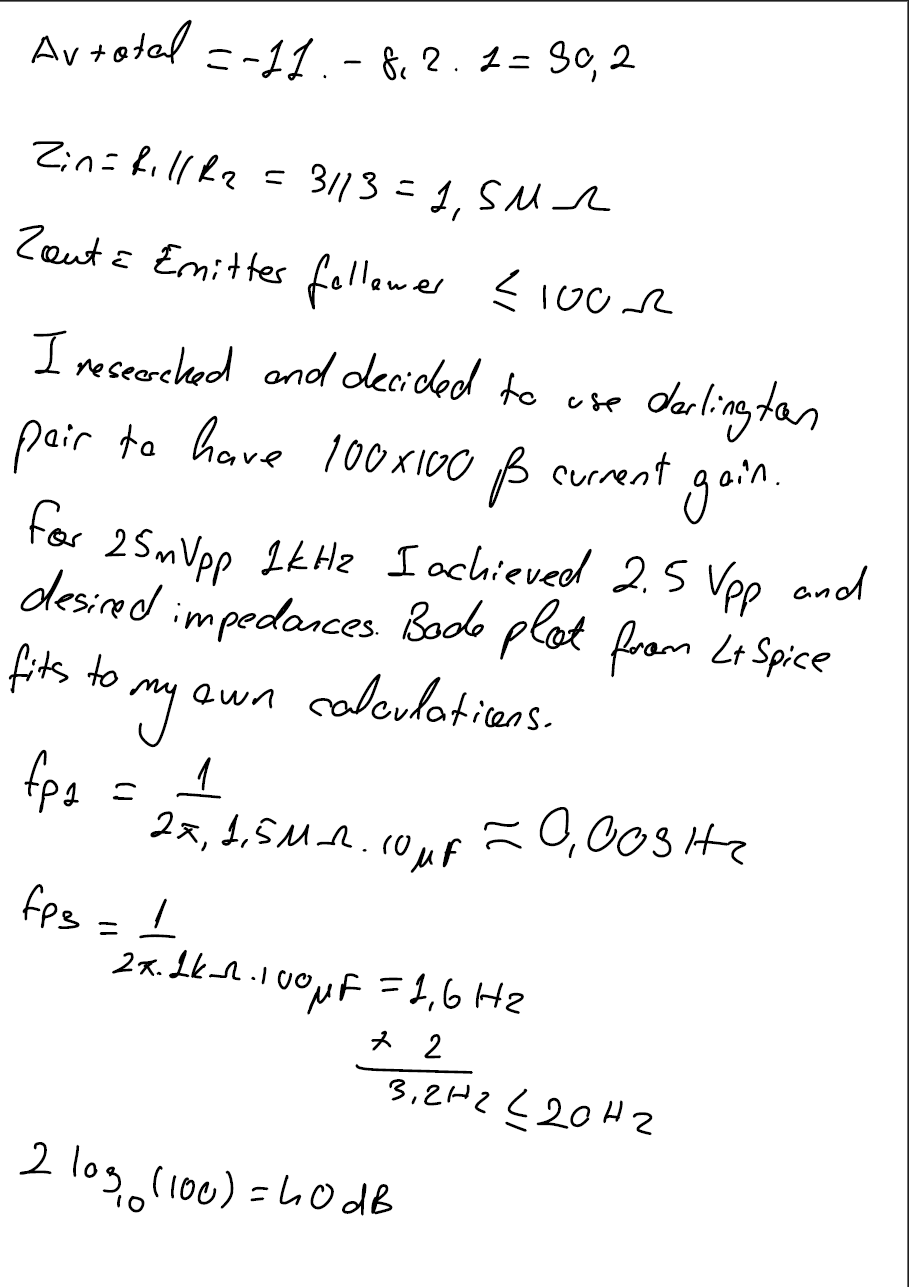 Av total = -11 . - 8,2 . 1 = 90,2
Zin = R1 // R2 = 3//3 = 1,5MΩ
Zout = Emitter follower ≤ 100Ω
I researched and decided to use darlington
pair to have 100x100 β current gain.
For 25mVpp 1kHz I achieved 2.5 Vpp and
desired impedances. Bode plot from LtSpice
fits to my own calculations.
fp1 = 1 / 2π, 1,5MΩ . 10μF ≈ 0,009Hz
fp3 = 1 / 2π. 1kΩ . 100μF = 1,6 Hz
x 2
3,2Hz ≤ 20Hz
2 log10 (100) = 40dB